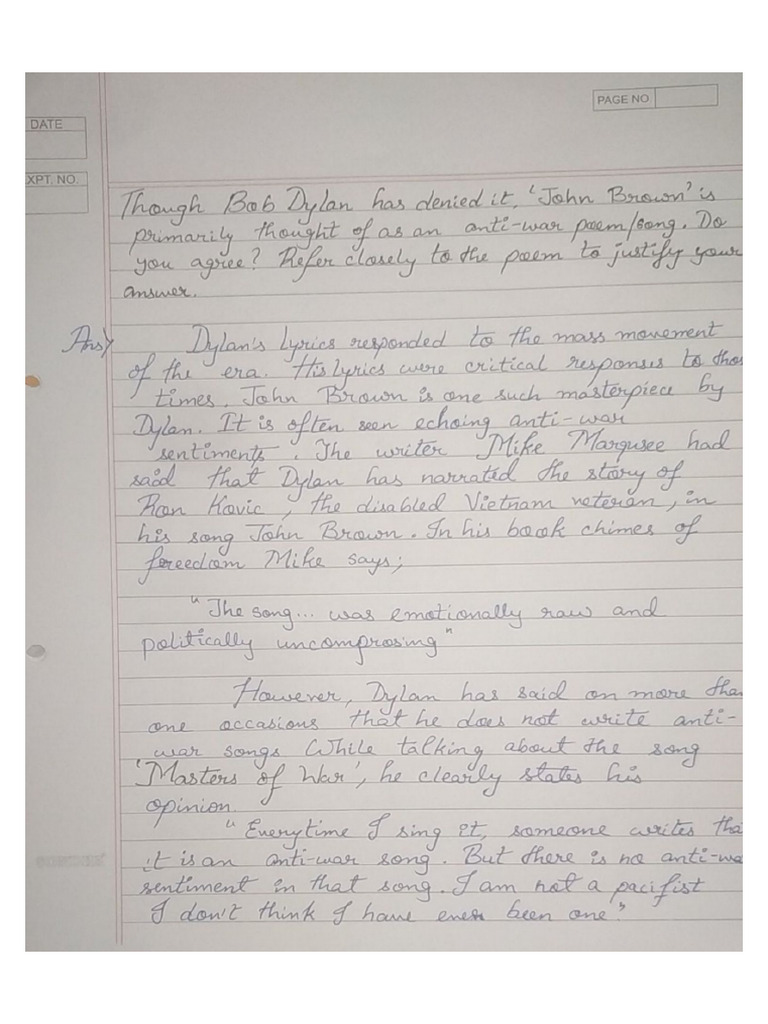 PAGE NO
DATE
XPT. NO.
Though Bob Dylan has denied it, 'John Brown' is
primarily thought of as an anti-war poem/song. Do
you agree? Refer closely to the poem to justify your
answer.
Ans) Dylan's lyrics responded to the mass movement
of the era. His lyrics were critical responses to thos
times. John Brown is one such masterpiece by
Dylan. It is often seen echoing anti-war
sentiments. The writer Mike Marqusee had
said that Dylan has narrated the story of
Ron Kovic, the disabled Vietnam veteran, in
his song John Brown. In his book chimes of
freedom Mike says;
"The song... was emotionally raw and
politically uncomprosing"
However, Dylan has said on more than
one occasions that he does not write anti-
war songs. While talking about the song
'Masters of War', he clearly states his
opinion.
"Everytime I sing it, someone writes tha
it is an anti-war song. But there is no anti-wa
sentiment in that song. I am not a pacifist
I don't think I have ever been one."